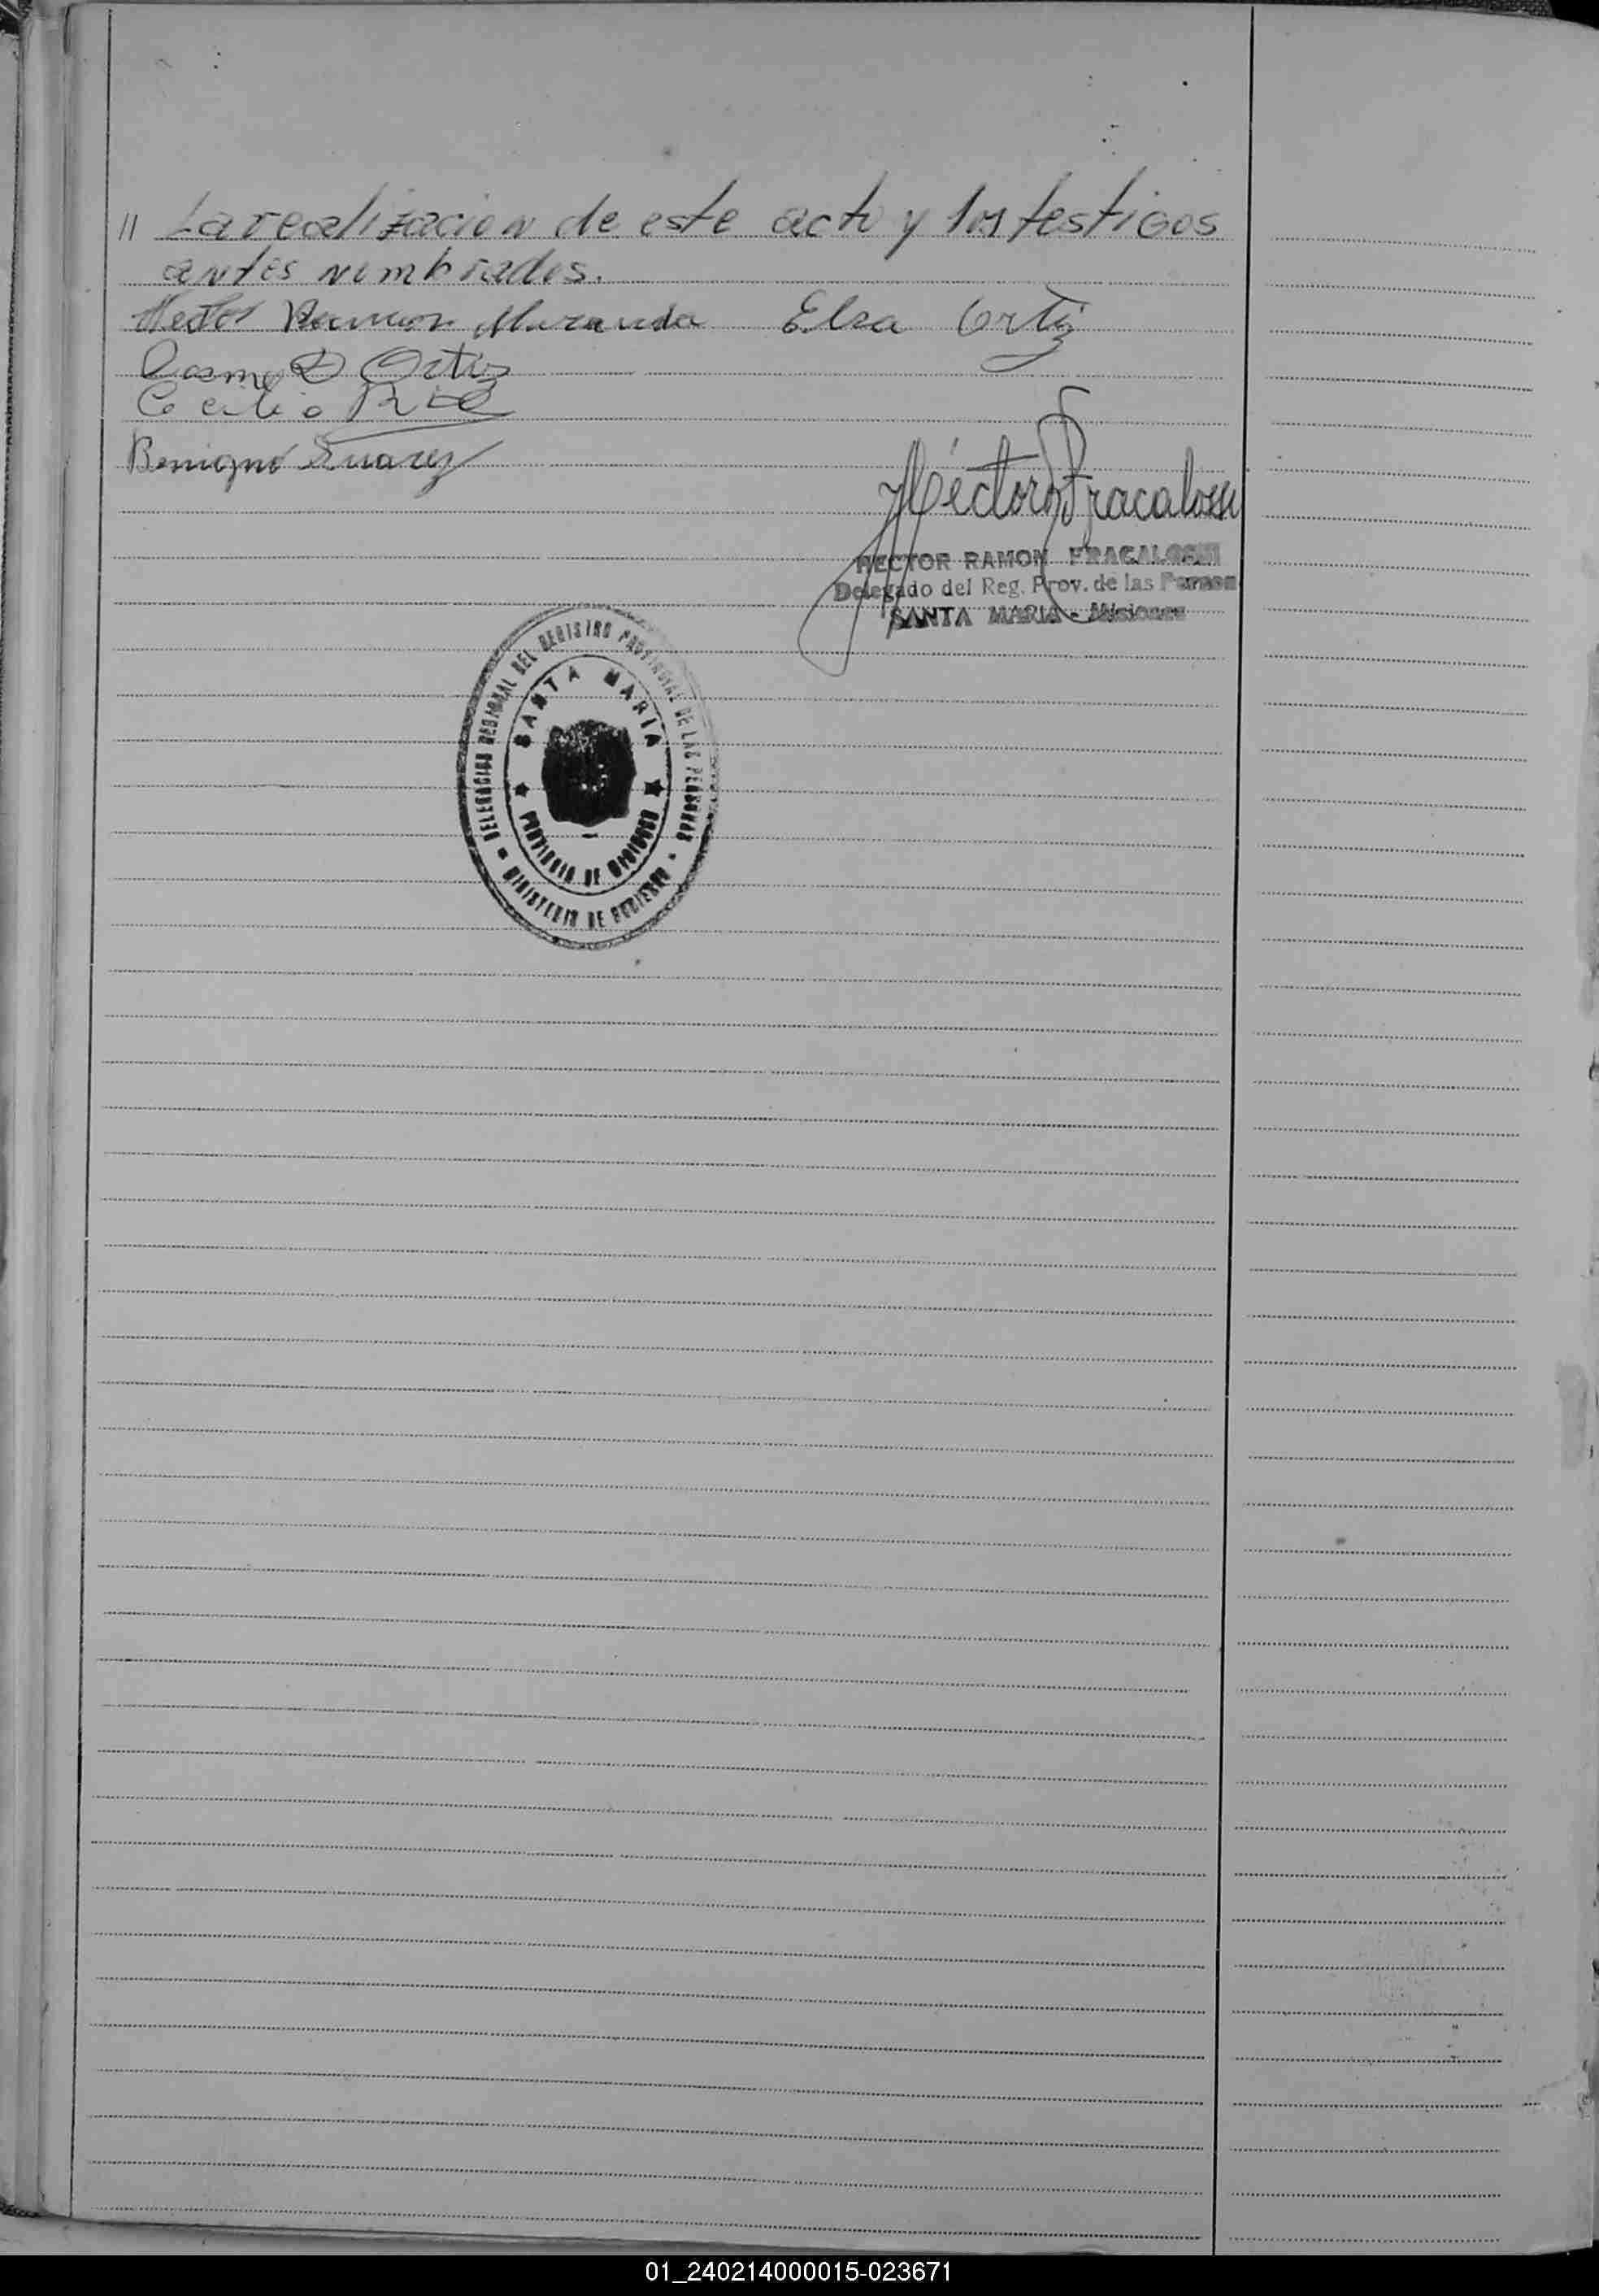 // La realizacion de este acto y los testigos
antes nombrados.
Hector Ramon Miranda Elsa Ortiz
Cosme D Ortiz
Cecilio
Benigno Suarez
Héctor R Fracalossi
HECTOR RAMON FRACALOSSI
Delegado del Reg. Prov. de las Person
SANTA MARIA - Misiones
DELEGACION REGIONAL DEL REGISTRO PROVINCIAL DE LAS PERSONAS
SANTA MARIA
PROVINCIA DE MISIONES
MINISTERIO DE GOBIERNO
01_240214000015-023671